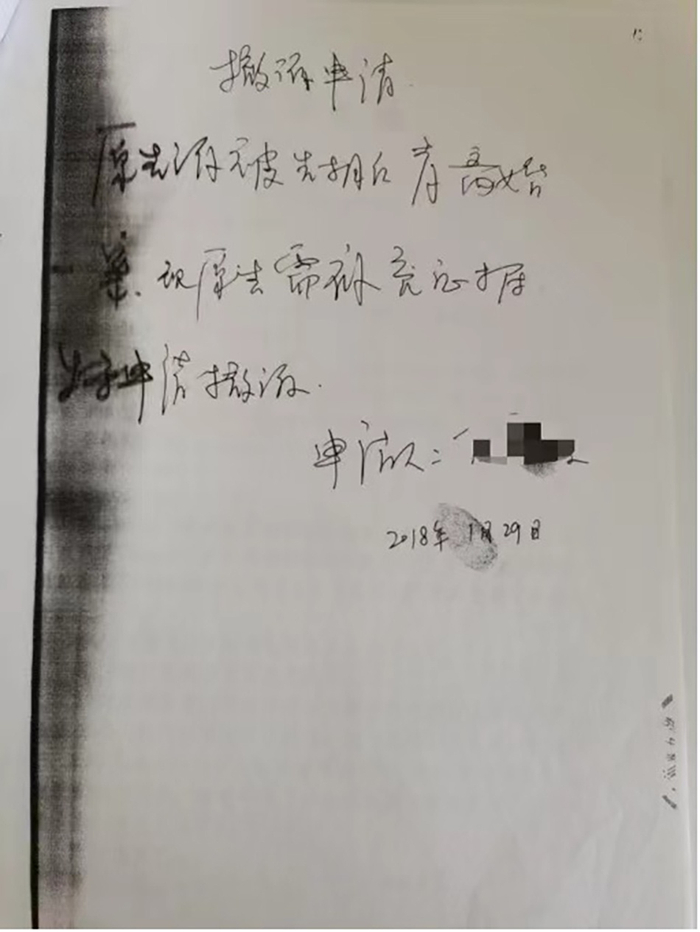 撤诉申请.
原告诉被告 离婚
案. 现原告需补充证据
申请撤诉.
申请人:
2018年1月29日